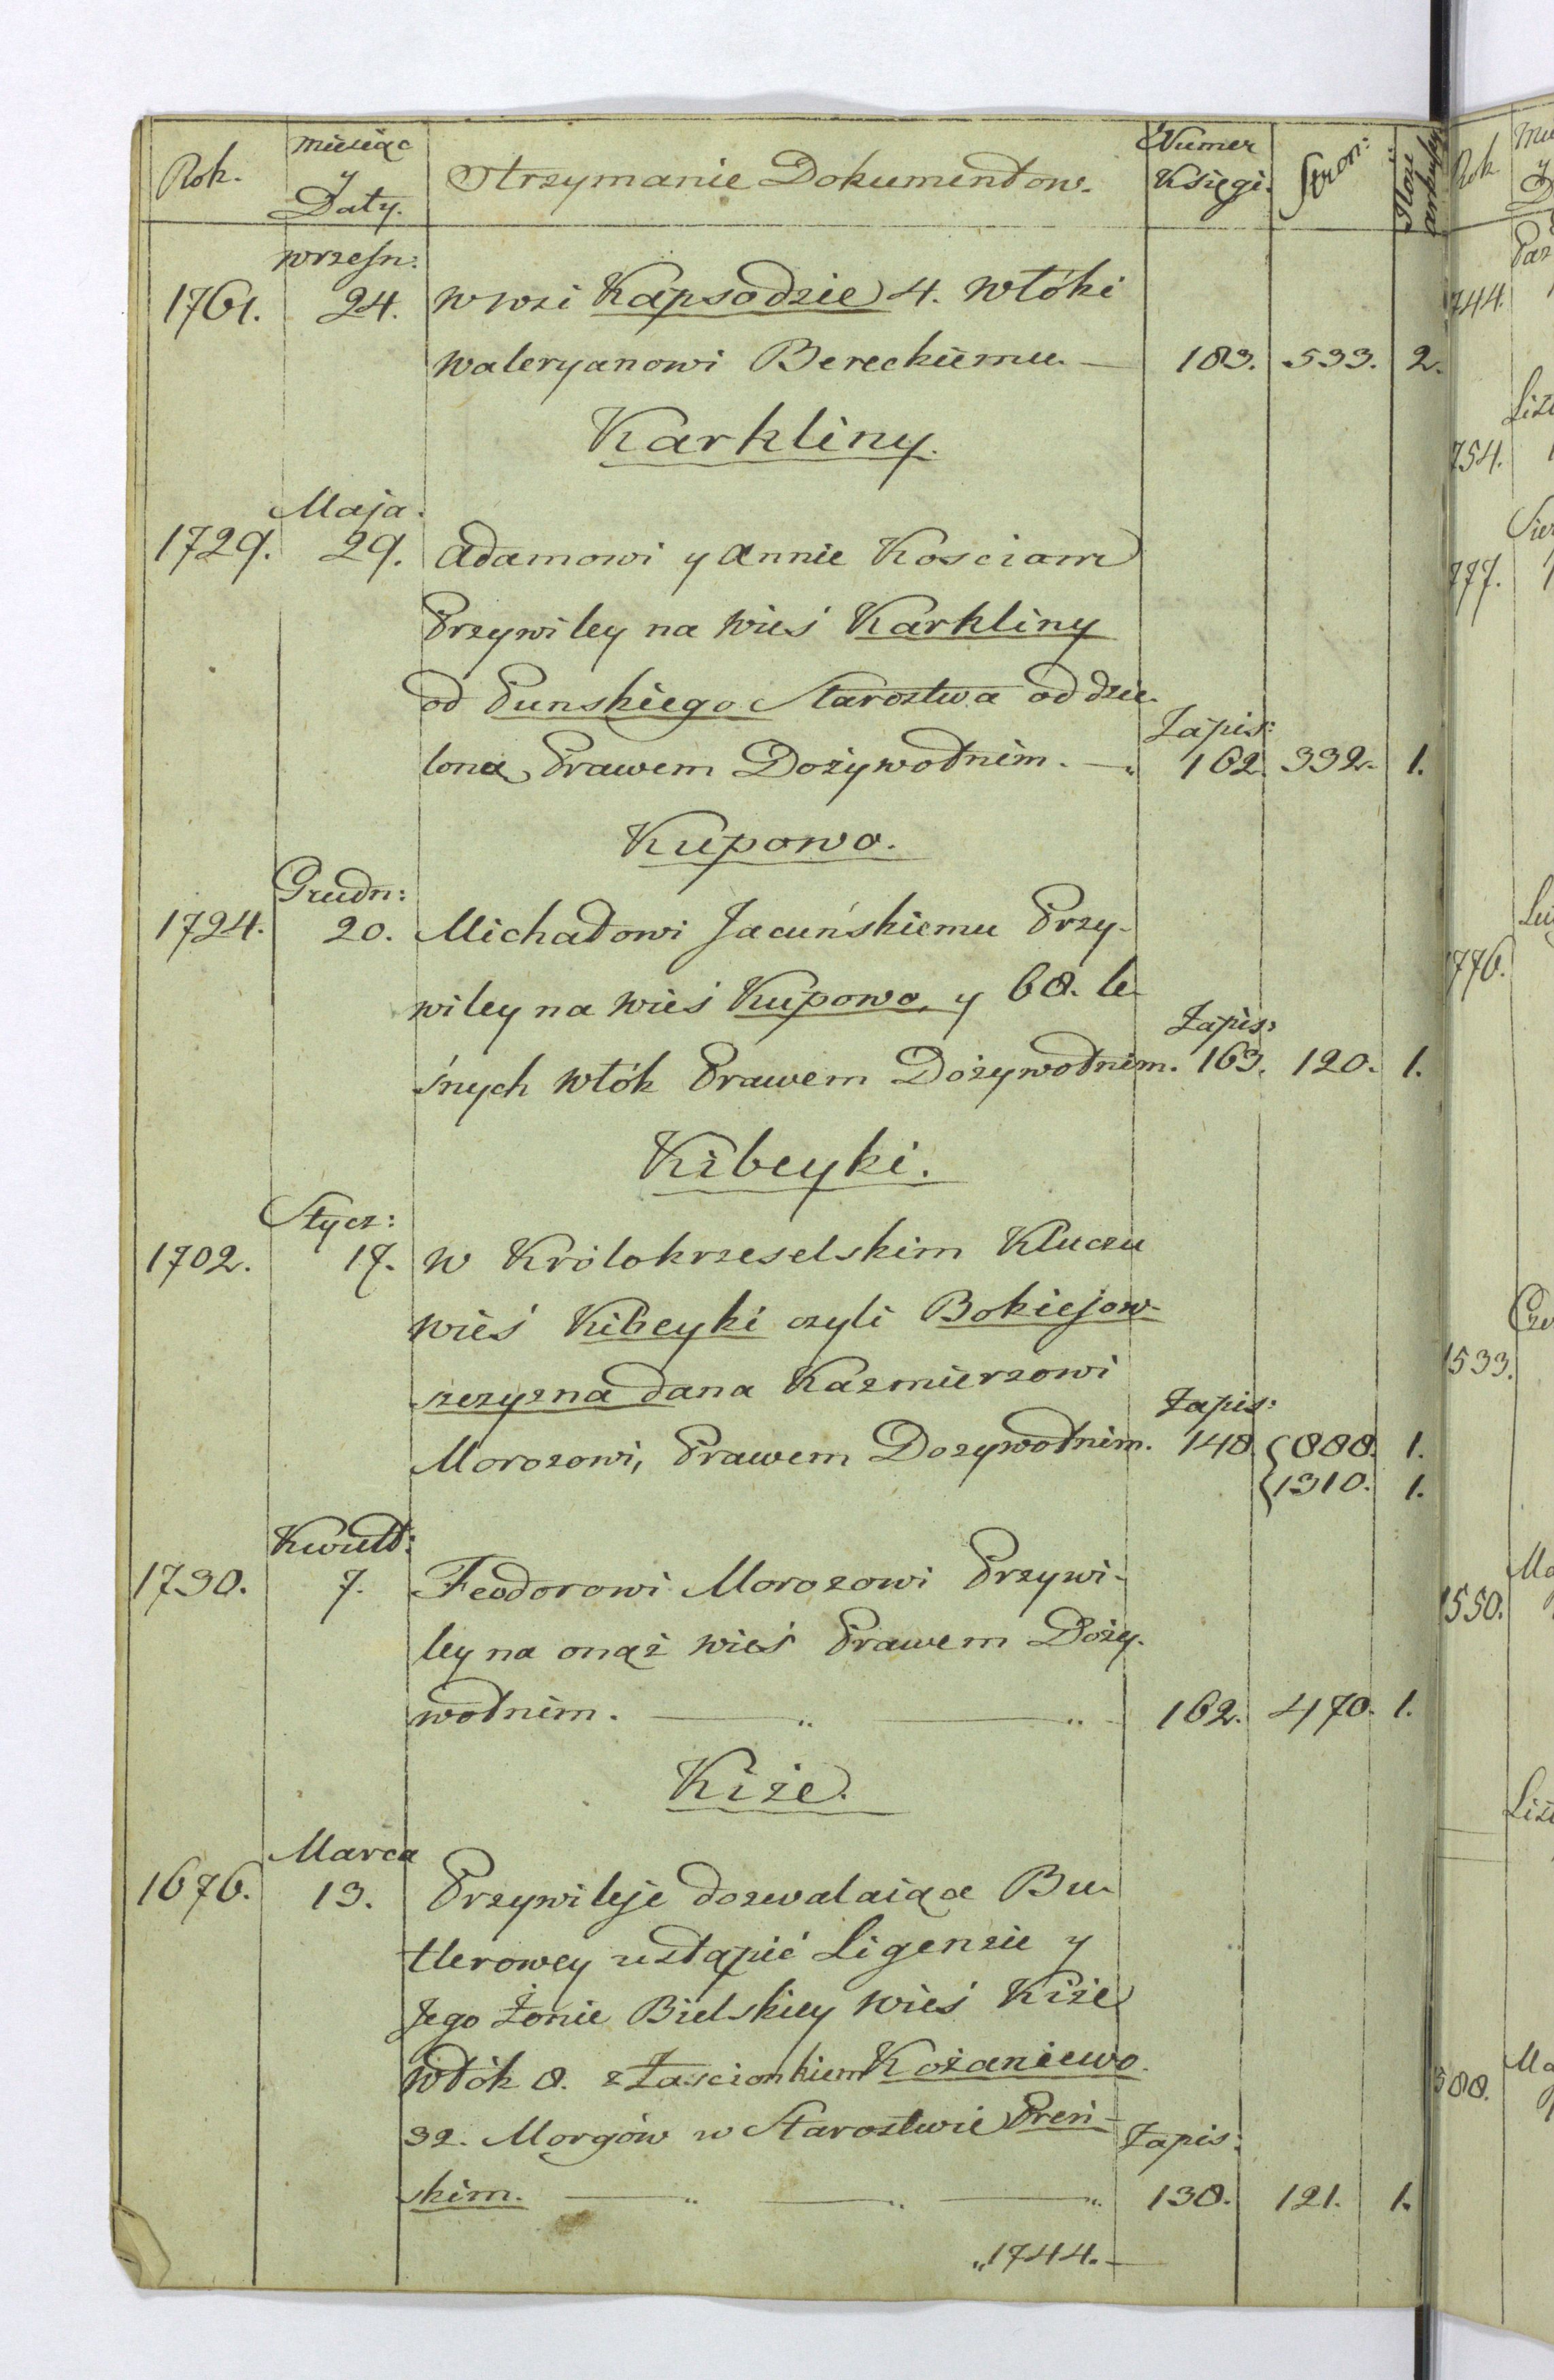 Rok. miesiąc y Daty. Otrzymanie Dokumentow. Numer Księgi. Stron: Ilość arkuszy
wrzesn:
1761. 24. w wsi Kapsodzie 4. włóki
waleryanowi Bereckiemu. — 183. 533. 2.
Karkliny.
Maja.
1729. 29. Adamowi y Annie Kosciam
Przywiley na wieś Karkliny
od Punskiego Starostwa od dzie-
Zapis:
lona Prawem Dożywotnim. — 162. 332. 1.
Kupowo.
Grudn:
1724. 20. Michałowi Jacuńskiemu Przy-
wiley na wieś Kupowo, y 68. le-
Zapis:
śnych włók Prawem Dożywotnim. 163. 120. 1.
Kibeyki.
Stycz:
1702. 17. w Królokrzeselskim Kluczu
wieś Kibeyki czyli Bokiejow-
szczyzna dana Kazmierzowi
Zapis:
Morozowi, Prawem Dozywotnim. 148. { 888. 1.
{ 1310. 1.
Kwiet:
1730. 7. Feodorowi Morozowi Przywi-
ley na onąż wieś Prawem Doży-
wotnim. — „ — „ 162. 470. 1.
Kiże.
Marca
1676. 13. Przywileje dozwalaiące Bu-
tlerowey ustąpić Ligenzie y
Jego Żonie Bielskiey wieś Kiże
włók 8. z Zascionkiem Kożaniewo
32. Morgów w Starostwie Preń-
Zapis:
skim. — „ — „ — „ 138. 121. 1.
„1744. —
Rok
744.
754.
777.
1776.
1533.
1550.
588.